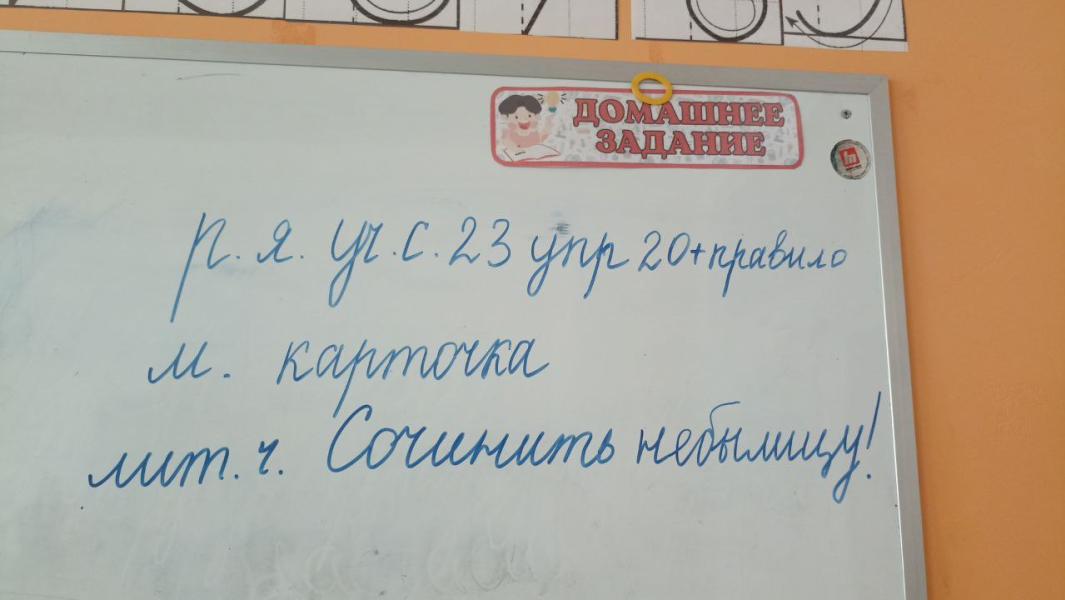 ДОМАШНЕЕ
ЗАДАНИЕ
р. я. уч. с. 23 упр 20 + правило
м. карточка
лит. ч. Сочинить небылицу!